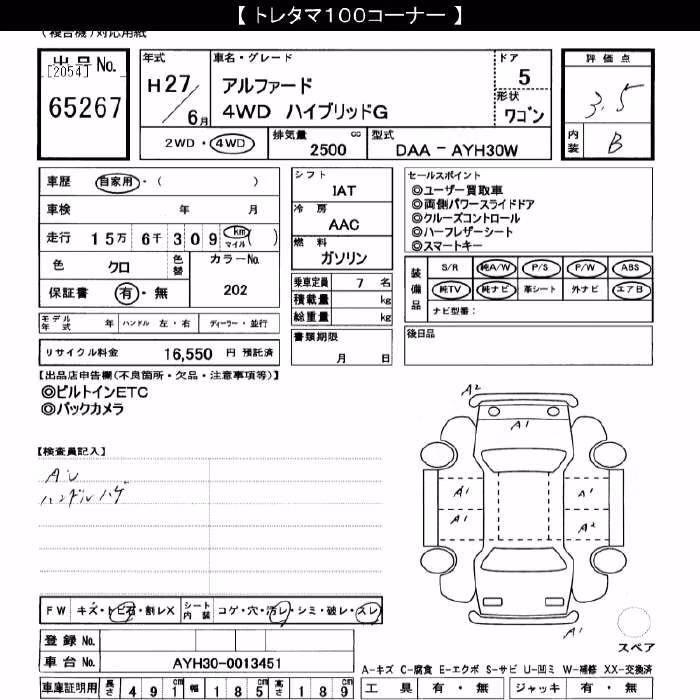 【 トレタマ100コーナー 】
(複合機)対応用紙
出品No.
[2054]
65267
年式
H27/6月
車名・グレード
アルファード
4WD ハイブリッドG
ドア
5
形状
ワゴン
評価点
3.5
内装
B
2WD・4WD
排気量 cc
2500
型式
DAA－AYH30W
車歴 自家用・( )
車検 年 月
走行 15万 6千 309 km マイル ( )
色 クロ
色替
カラーNo.
202
保証書 有・無
シフト
IAT
冷房
AAC
燃料
ガソリン
乗車定員 7 名
積載量 kg
総重量 kg
書類期限
月 日
セールスポイント
◎ユーザー買取車
◎両側パワースライドドア
◎クルーズコントロール
◎ハーフレザーシート
◎スマートキー
装備品
S/R 純A/W P/S P/W ABS
純TV 純ナビ 革シート 外ナビ エアB
ナビ型番:
後日品
モデル年式 年 ハンドル 左・右 ディーラー・並行
リサイクル料金 16,550 円 預託済
【出品店申告欄(不良箇所・欠品・注意事項等)】
◎ビルトインETC
◎バックカメラ
【検査員記入】
AU
ハンドルハゲ
A2
A1
A1 A1
A1 A2
A1
スペア
FW キズ・トビ石・割レX
シート内装 コゲ・穴・汚レ・シミ・破レ・スレ
登録No.
車台No. AYH30-0013451
車庫証明用 長さ 491cm 幅 185cm 高さ 189cm
A-キズ C-腐食 E-エクボ S-サビ U-凹ミ W-補修 XX-交換済
工具 有・無 ジャッキ 有・無